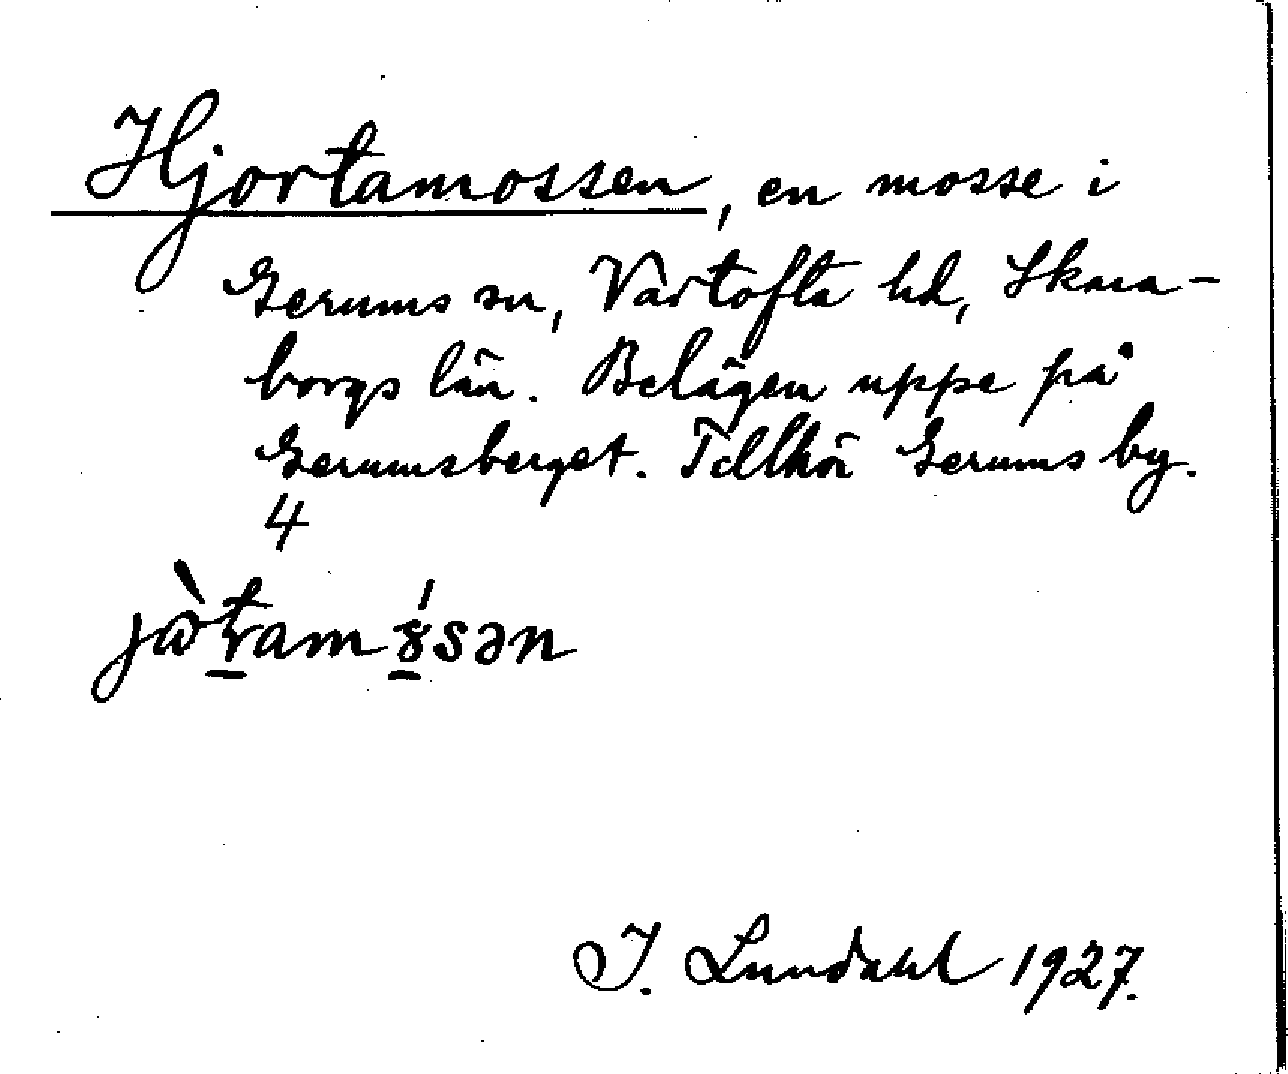 Hjortamossen, en mosse i
Gerums sn, Vartofta hd, Skara-
borgs län. Belägen uppe på
Gerumsberget. Tillhör Gerums by.
4
jɷ̀ʈam ɣ́sən
I. Lundahl 1927.